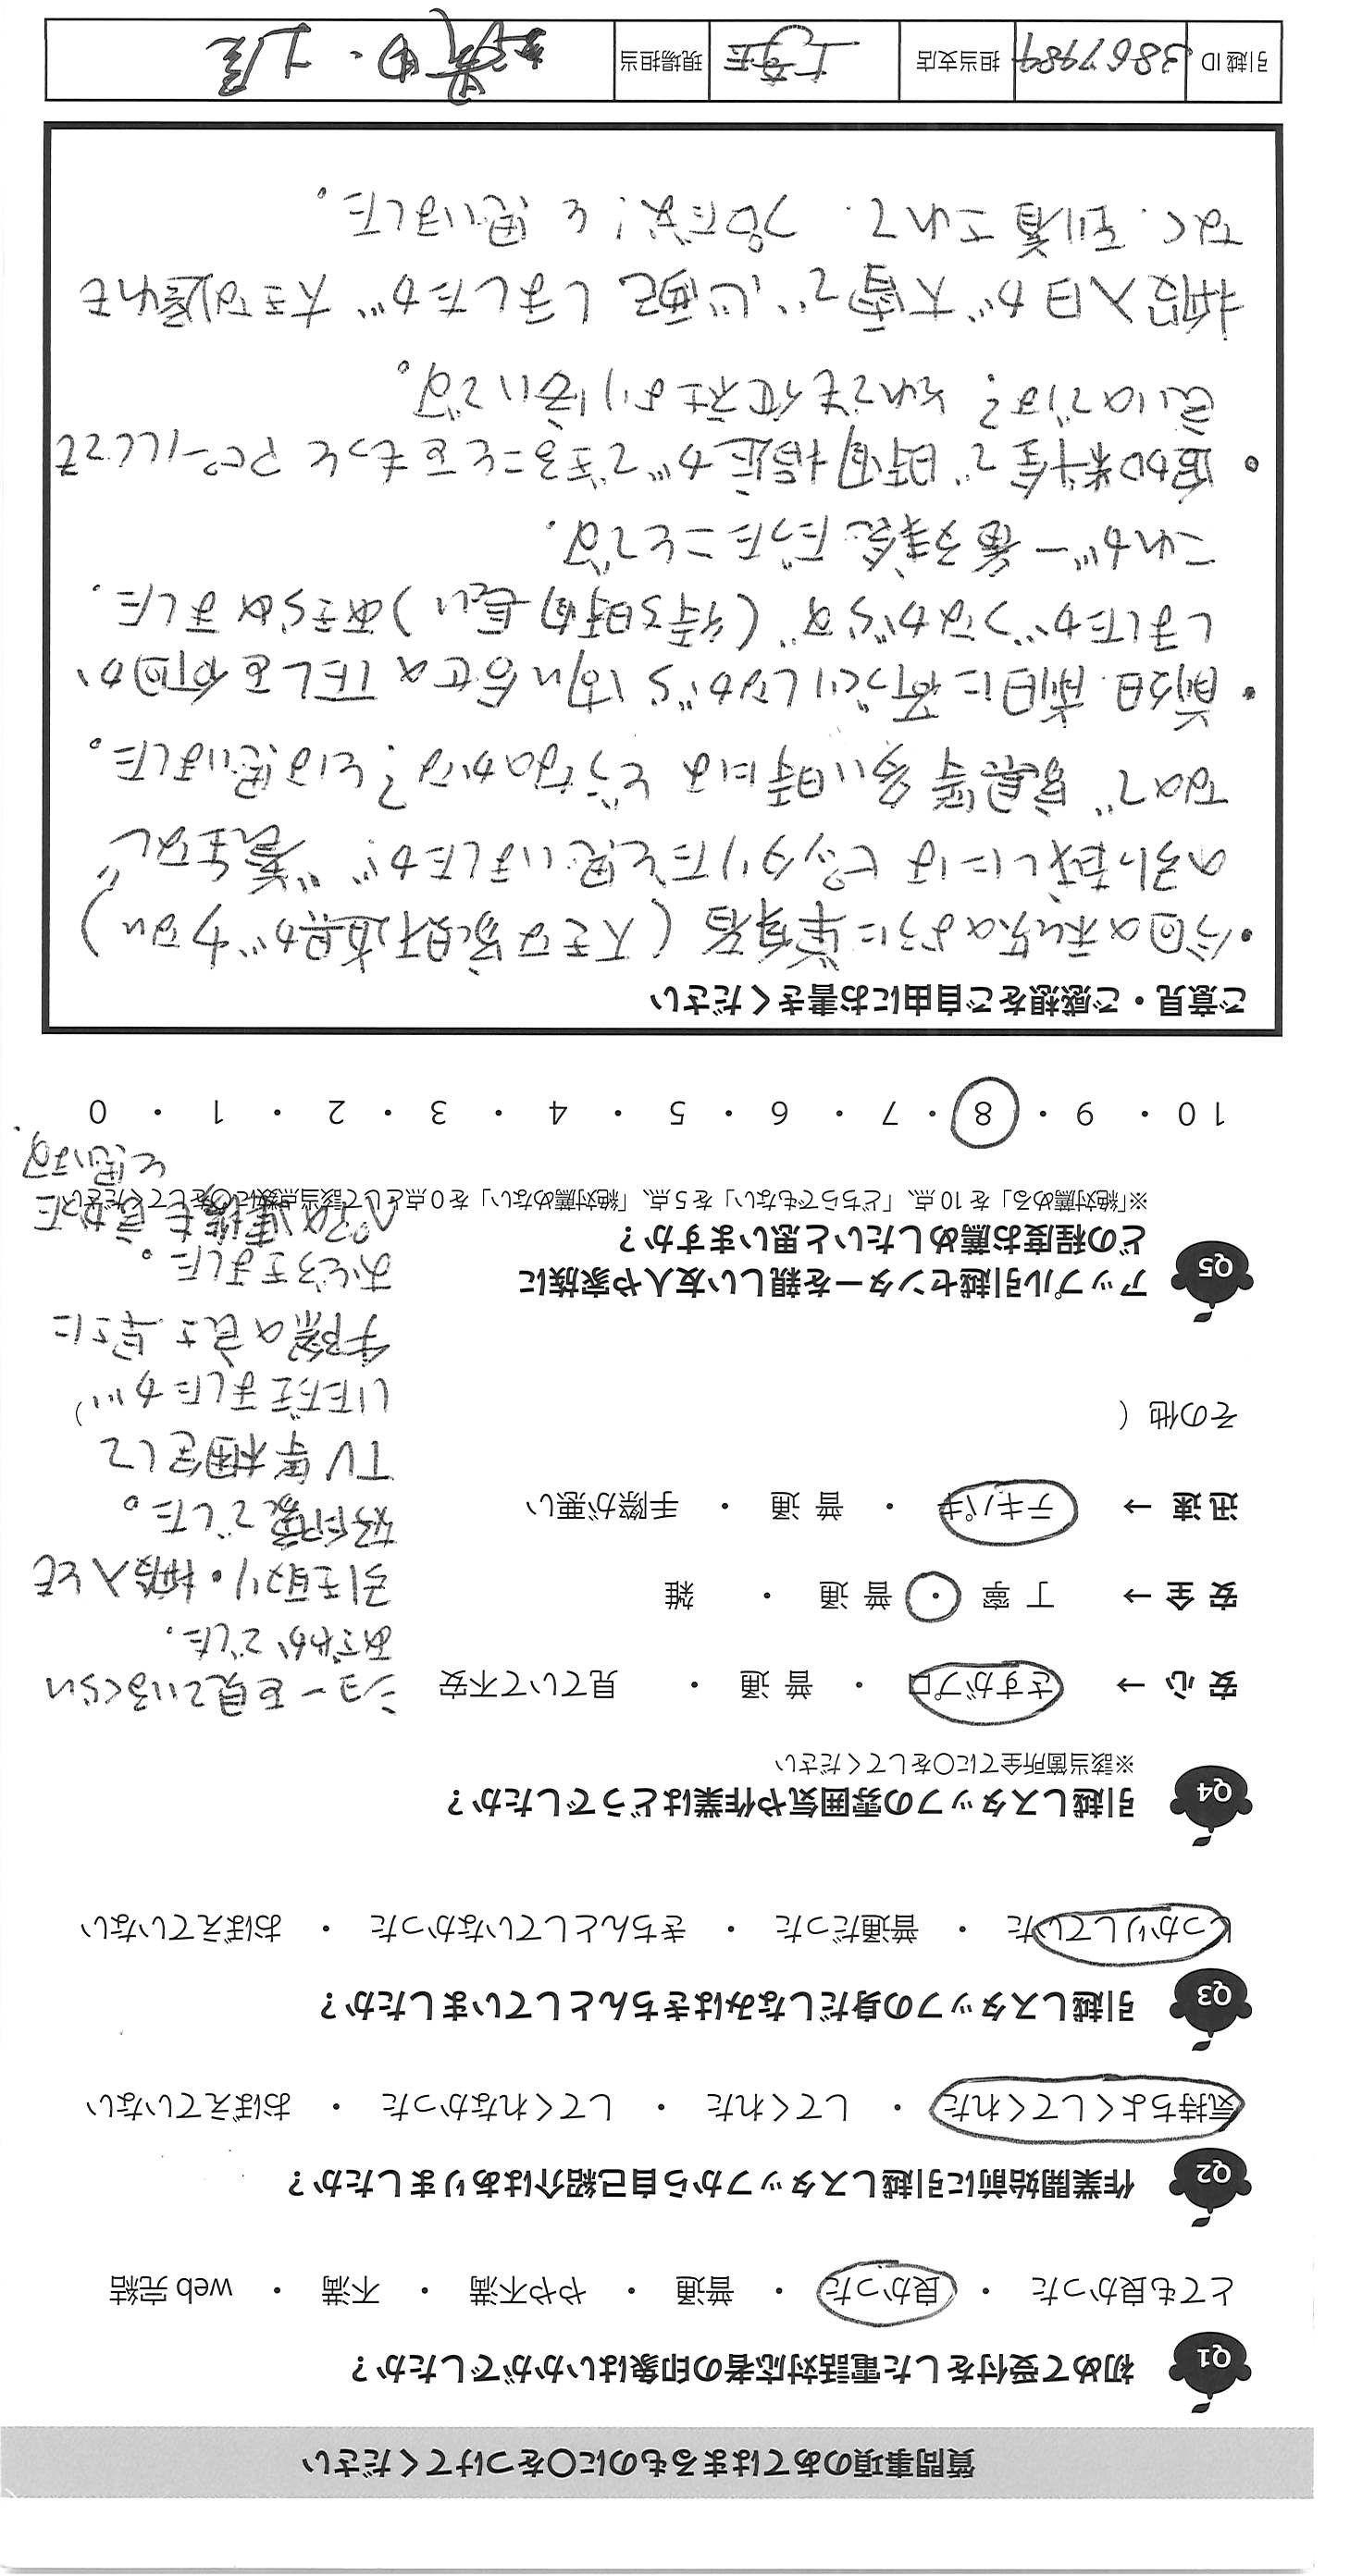 質問事項のあてはまるものに〇をつけてください
Q1 初めて受付をした電話対応者の印象はいかがでしたか？
とても良かった ・ 良かった ・ 普通 ・ やや不満 ・ 不満 ・ web 完結
Q2 作業開始前に引越しスタッフから自己紹介はありましたか？
気持ちよくしてくれた ・ してくれた ・ してくれなかった ・ おぼえていない
Q3 引越しスタッフの身だしなみはきちんとしていましたか？
しっかりしていた ・ 普通だった ・ きちんとしていなかった ・ おぼえていない
Q4 引越しスタッフの雰囲気や作業はどうでしたか？
※該当箇所全てに〇をしてください
安 心 → さすがプロ ・ 普 通 ・ 見ていて不安
安 全 → 丁 寧 ・ 普 通 ・ 雑
迅 速 → テキパキ ・ 普 通 ・ 手際が悪い
その他（
ショーを見ているくらい
あざやかでした.
引き取り・搬入とも
好印象でした。
TV等梱包して
いただきましたが、
手際の良さ 早さに
おどろきました。
ペアの連携も良かった
と思います.
Q5 アップル引越センターを親しい友人や家族に
どの程度お薦めしたいと思いますか？
※「絶対薦める」を 10 点、「どちらでもない」を 5 点、「絶対薦めない」を 0 点として該当点数に〇をしてください
10 ・ 9 ・ 8 ・ 7 ・ 6 ・ 5 ・ 4 ・ 3 ・ 2 ・ 1 ・ 0
ご意見・ご感想をご自由にお書きください
・今回の私共のように単身者（大きな家財道具が少ない）
の引越しにはピッタリだと思いましたが “養生なし”
なので 家具等多い時には どうなのかな？とは思いました。
・前々日. 前日に荷づくりしながら 問い合せのTELを何回か
しましたがつながらず（待ち時間長い）あきらめました.
これが一番残念だったことです.
・追加料金で時間指定ができることをもっとPRしても
良いのでは？それでも他社より安いです。
搬入日が大雪で心配しましたが 大きな遅れも
なく. 到着されて. プロだな！と思いました。
引越 ID 3867984 担当支店 現場担当